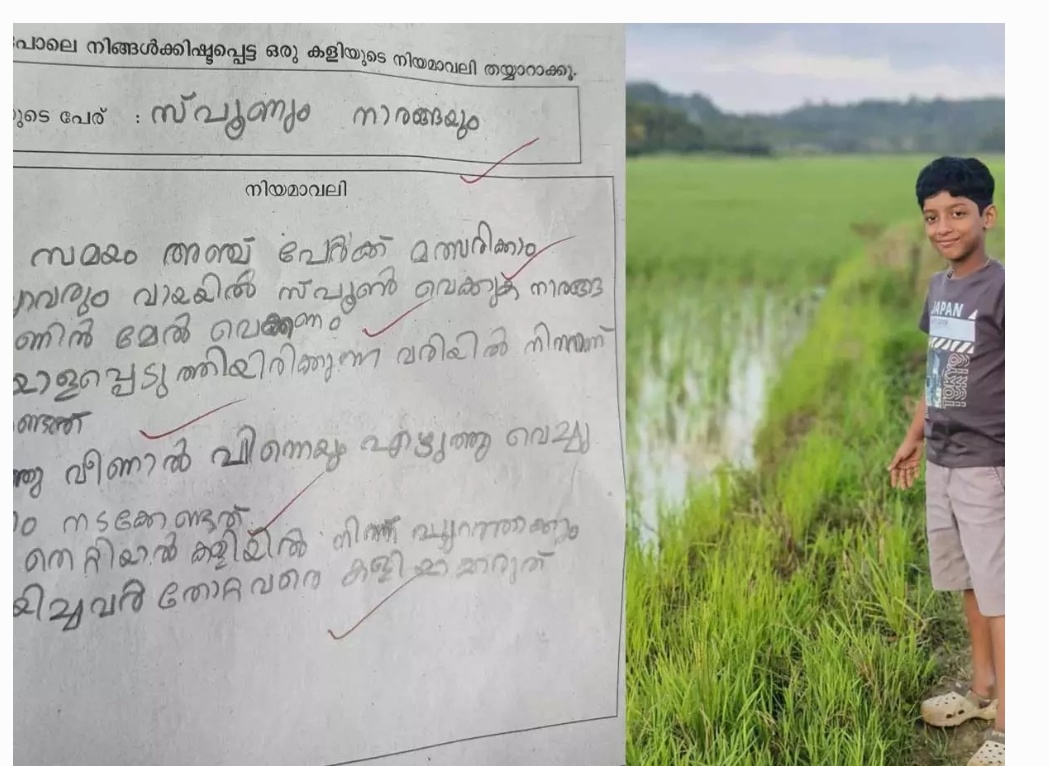 പോലെ നിങ്ങൾക്കിഷ്ടപ്പെട്ട ഒരു കളിയുടെ നിയമാവലി തയ്യാറാക്കൂ.
യുടെ പേര് : സ്പൂണും നാരങ്ങയും
നിയമാവലി
സമയം അഞ്ച് പേർക്ക് മത്സരിക്കാം
വരും വായയിൽ സ്പൂൺ വെക്കുക നാരങ്ങ
ണിൻ മേൽ വെക്കണം
യാളപ്പെടുത്തിയിരിക്കുന്ന വരിയിൽ നിന്നാണ്
ണ്ടത്
വീണാൽ പിന്നെയും എടുത്തു വെച്ചു
നടക്കേണ്ടത്
തെറ്റിയാൽ കളിയിൽ നിന്ന് പുറത്താക്കും
യിച്ചവർ തോറ്റവരെ കളിയാക്കരുത്
JAPAN